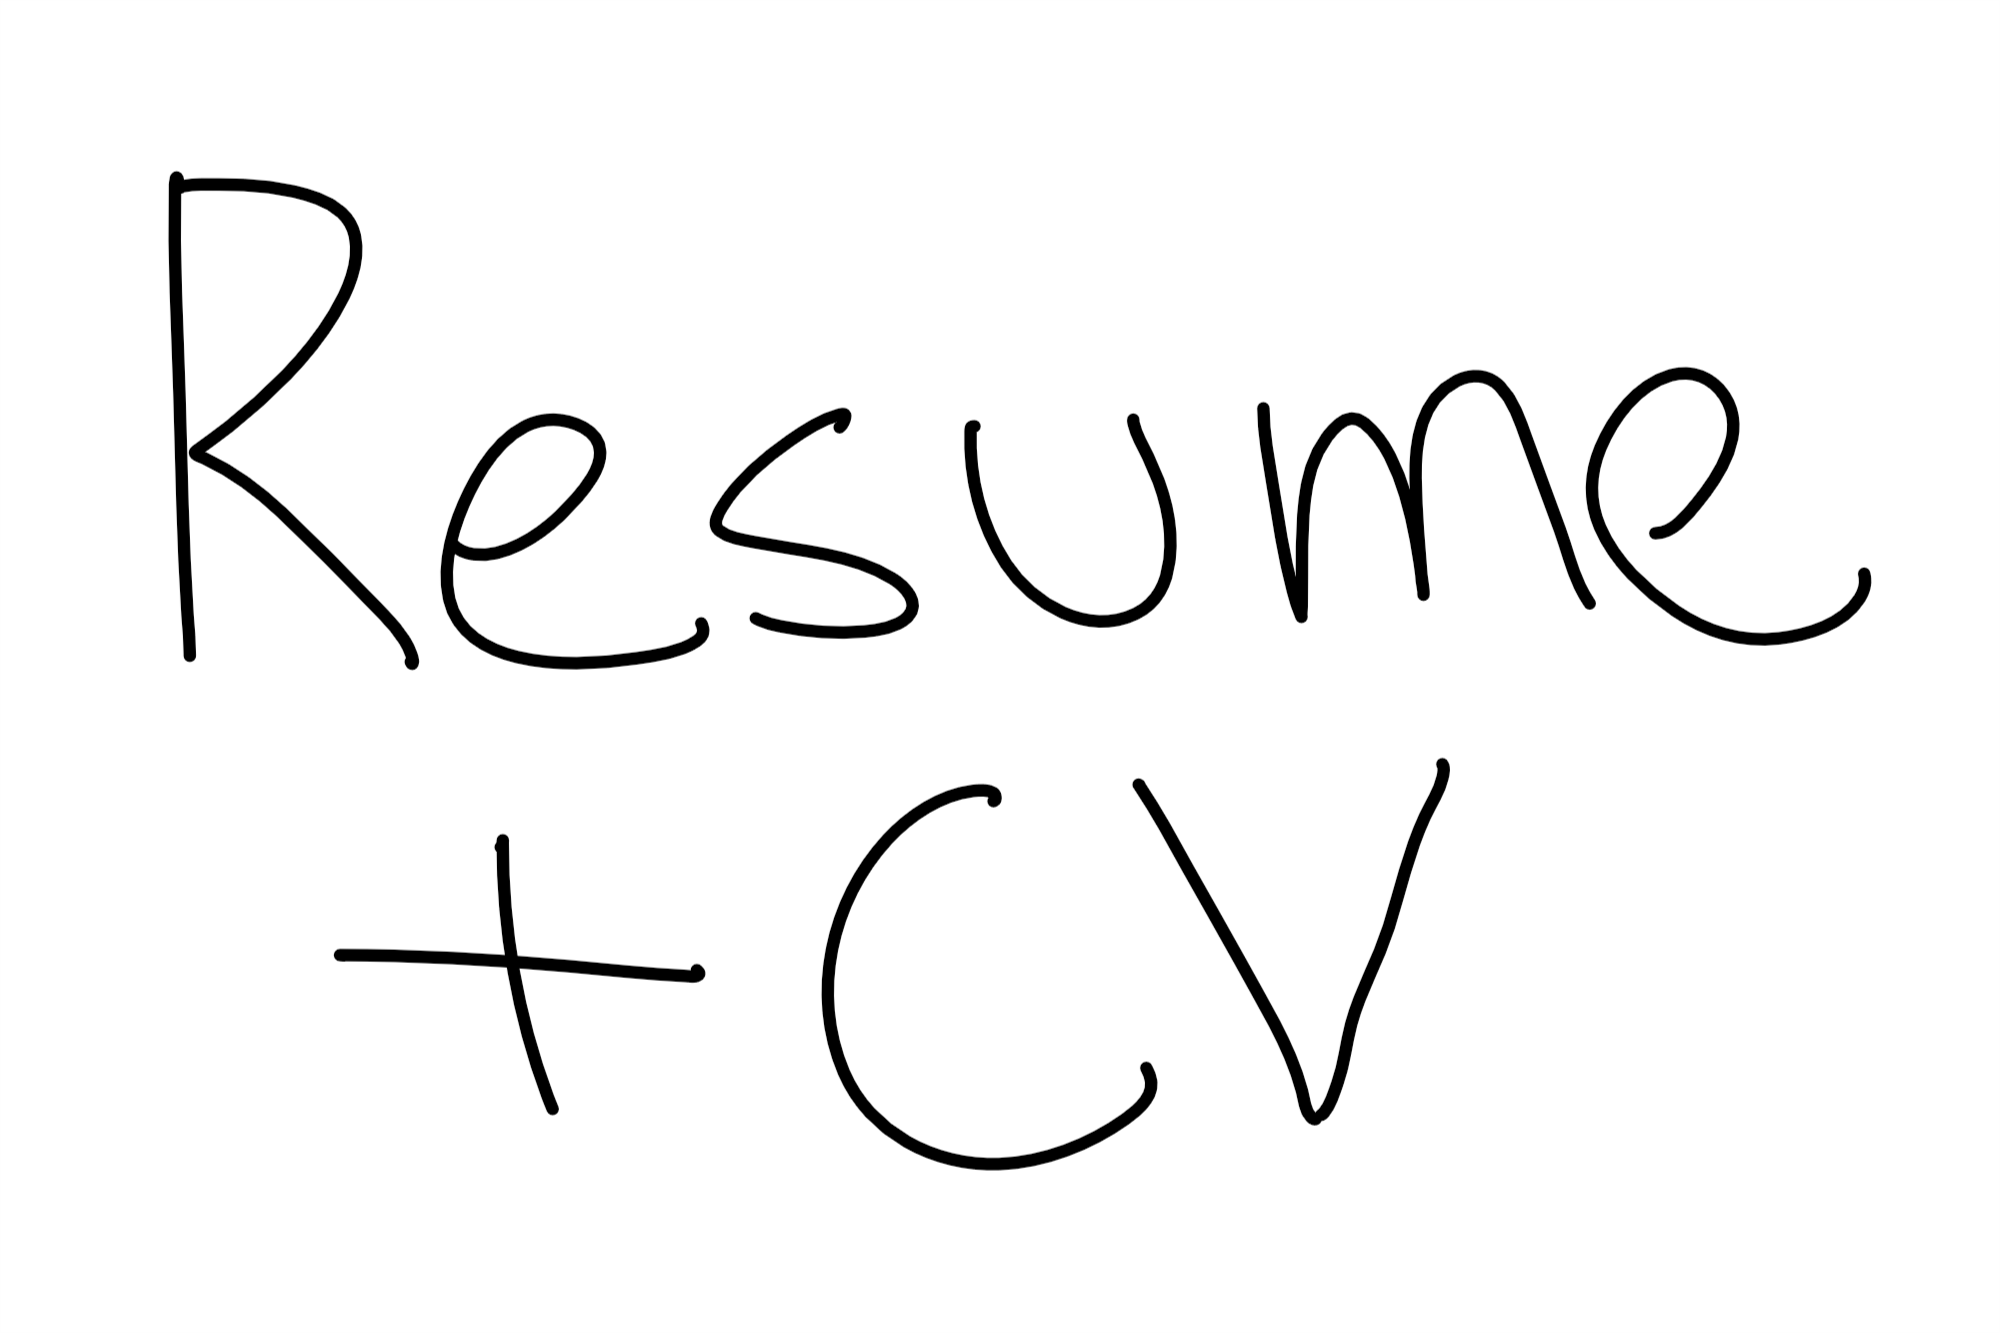 Resume
+ CV